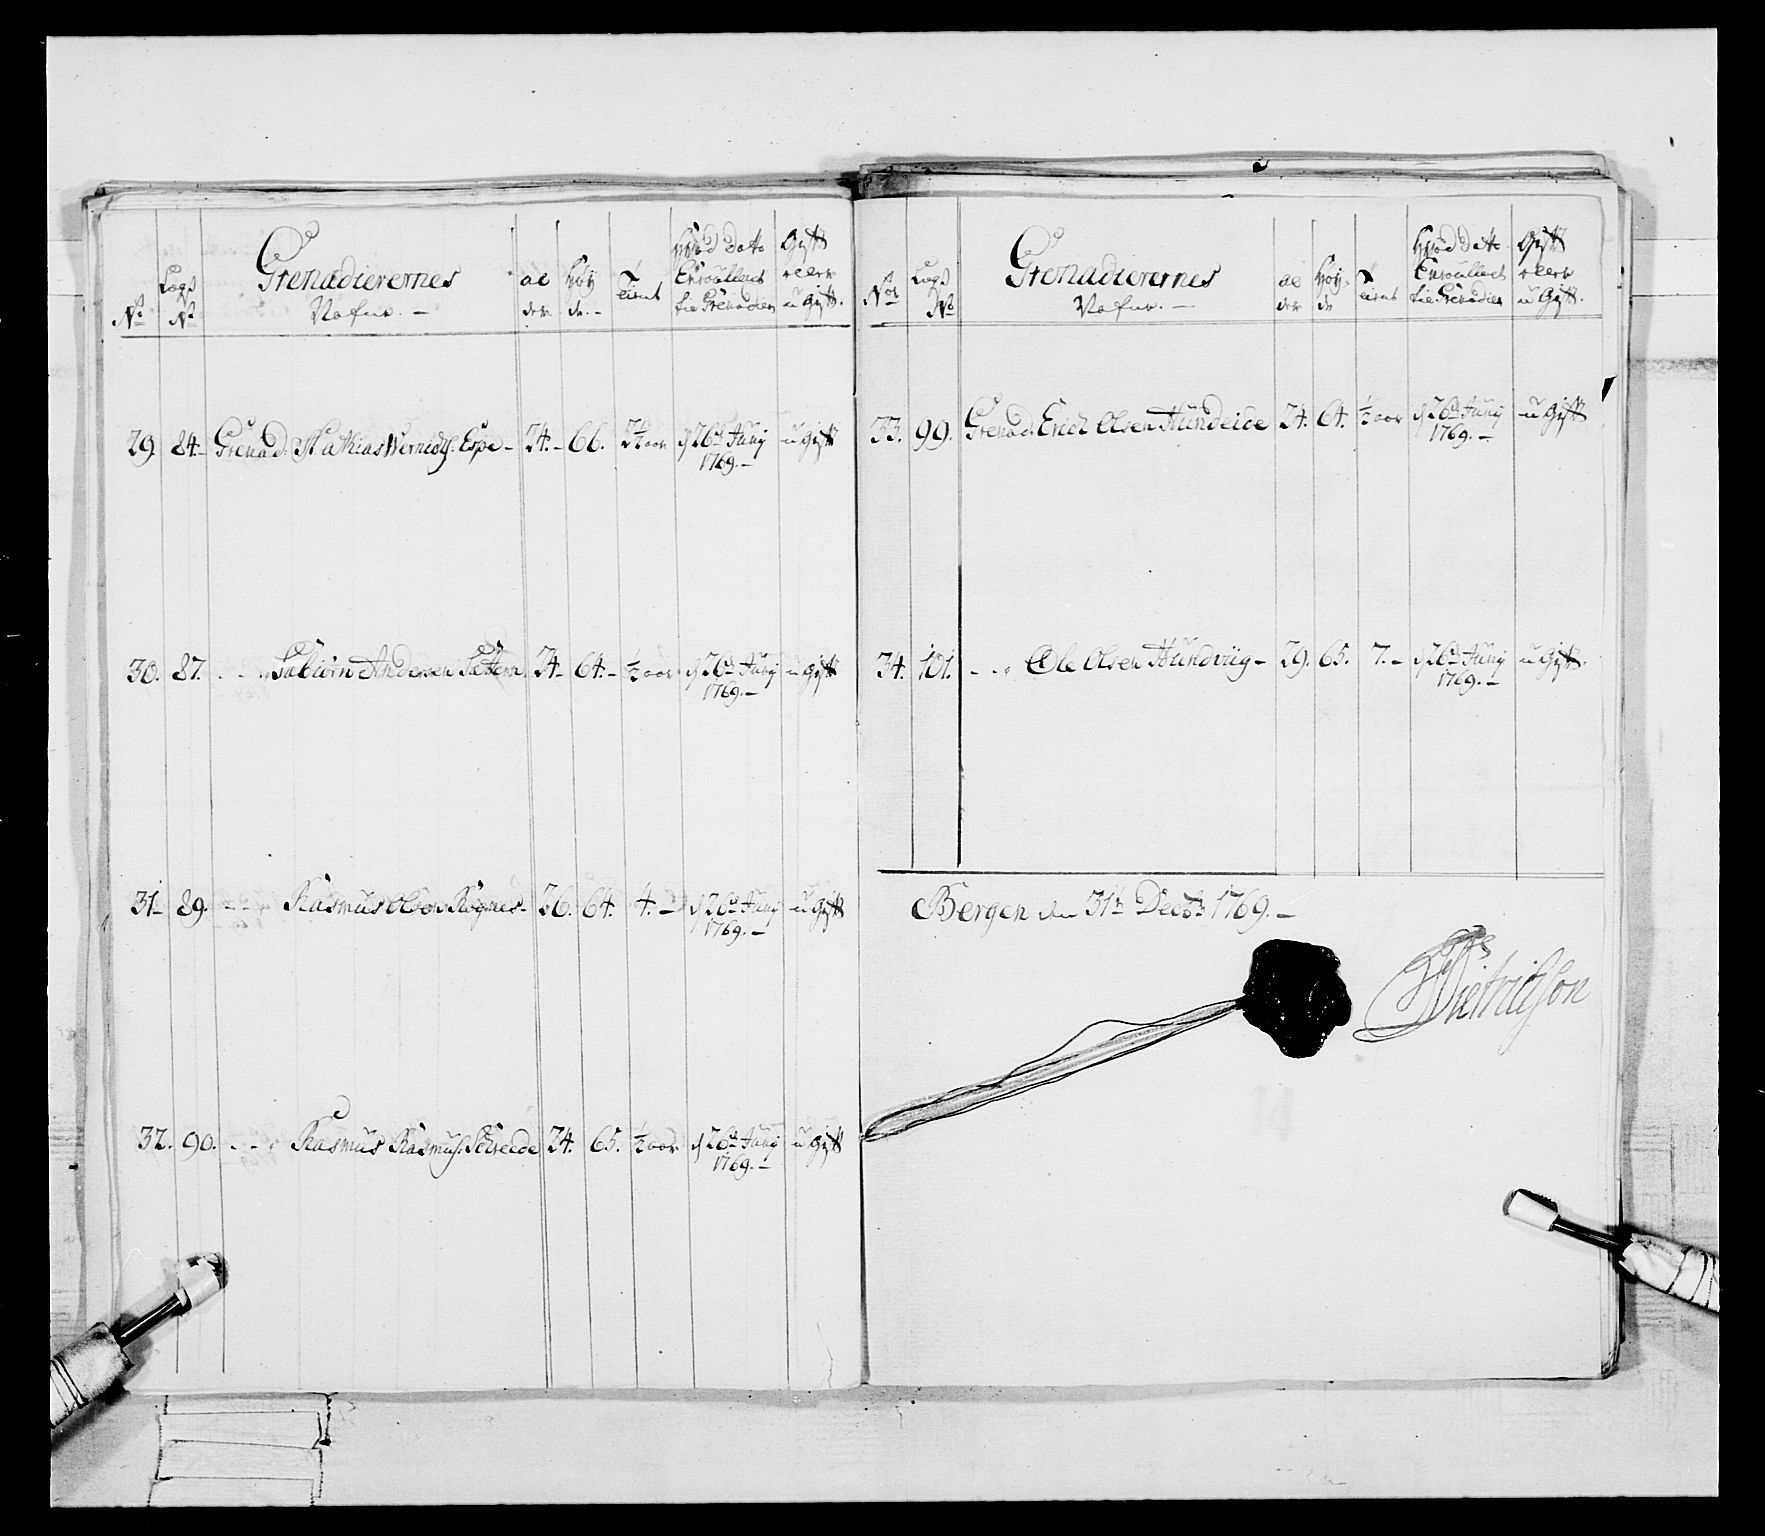 No Lægs No Grenadierernes Nafne. – al der. Høy de. – Tienst Hvad dato Enroulleret til Grenadier Gift eller u Gift.
29 84. – Grenad. Mathias Wernichs. Espe – 24. – 66. 2½ aar d 26de Juny 1769. – u Gift
30. 87. Andersen 24 – 64. – ½ aar d 26de Juny 1769. – u Gift
31 – 89. Rasmus Olsen Rognes – 26. 64. 4. – d 26de Juny 1769. – u Gift
32. 90. Rasmus Rasmus. Schreede 24. 65. ½ aar d 26de Juny 1769. – u Gift
Nor Lægs No Grenadierernes Nafne. – al der Høy de Tienst Hvad dato Enroulleret til Grenadier Gift eller u Gift.
33. 99. Grenad. Erich Olsen Hundeide 24. 64. ½ aar d 26de Juny 1769. – u Gift
34. 101. Ole Olsen Hundviig – 29. 65. 7. – d 26de Juny 1769. – u Gift.
Bergen den 31te Decbr 1769. –
Dietrichson